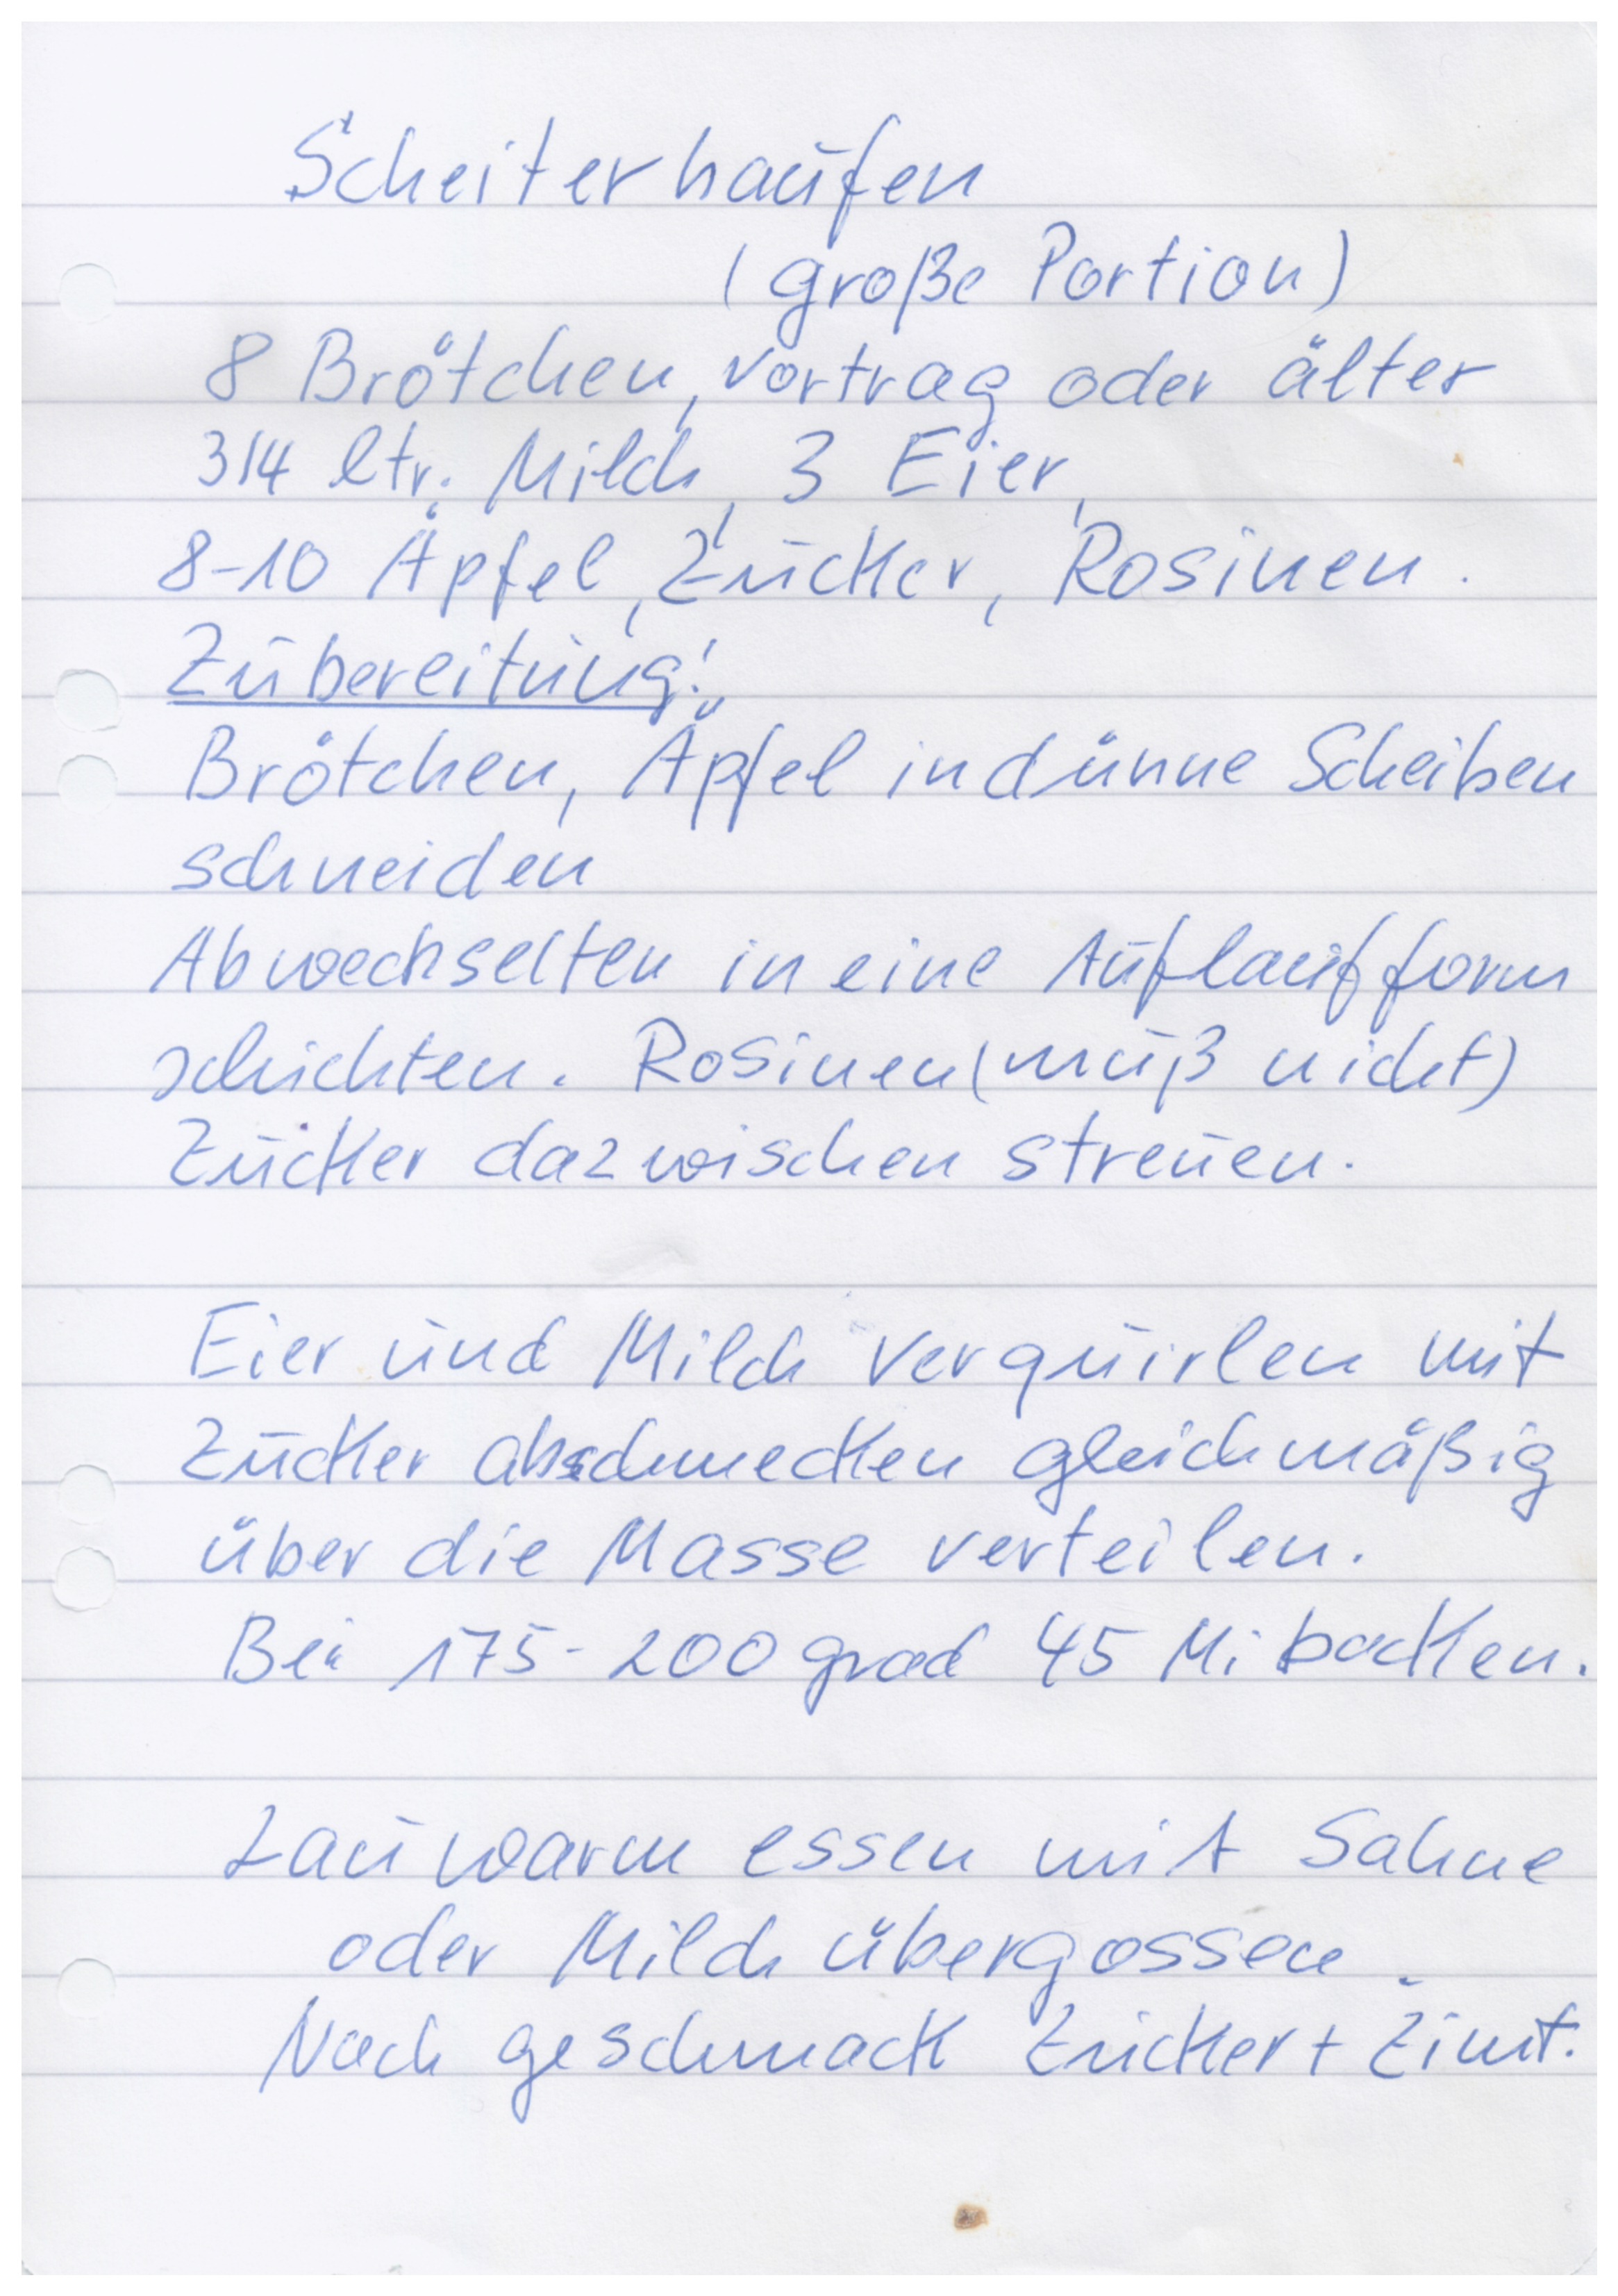 Scheiterhaufen
(große Portion)
8 Brötchen, Vortrag oder älter
3/4 ltr. Milch, 3 Eier,
8-10 Äpfel, Zucker, Rosinen.
Zubereitung:
Brötchen, Äpfel in dünne Scheiben
schneiden
Abwechselten in eine Auflaufform
schichten. Rosinen (muß nicht)
Zucker dazwischen streuen.
Eier und Milch verquirlen mit
Zucker abschmecken gleichmäßig
über die Masse verteilen.
Bei 175-200 grad 45 Mi backen.
Lauwarm essen mit Sahne
oder Milch übergossen.
Nach geschmack Zucker + Zimt.